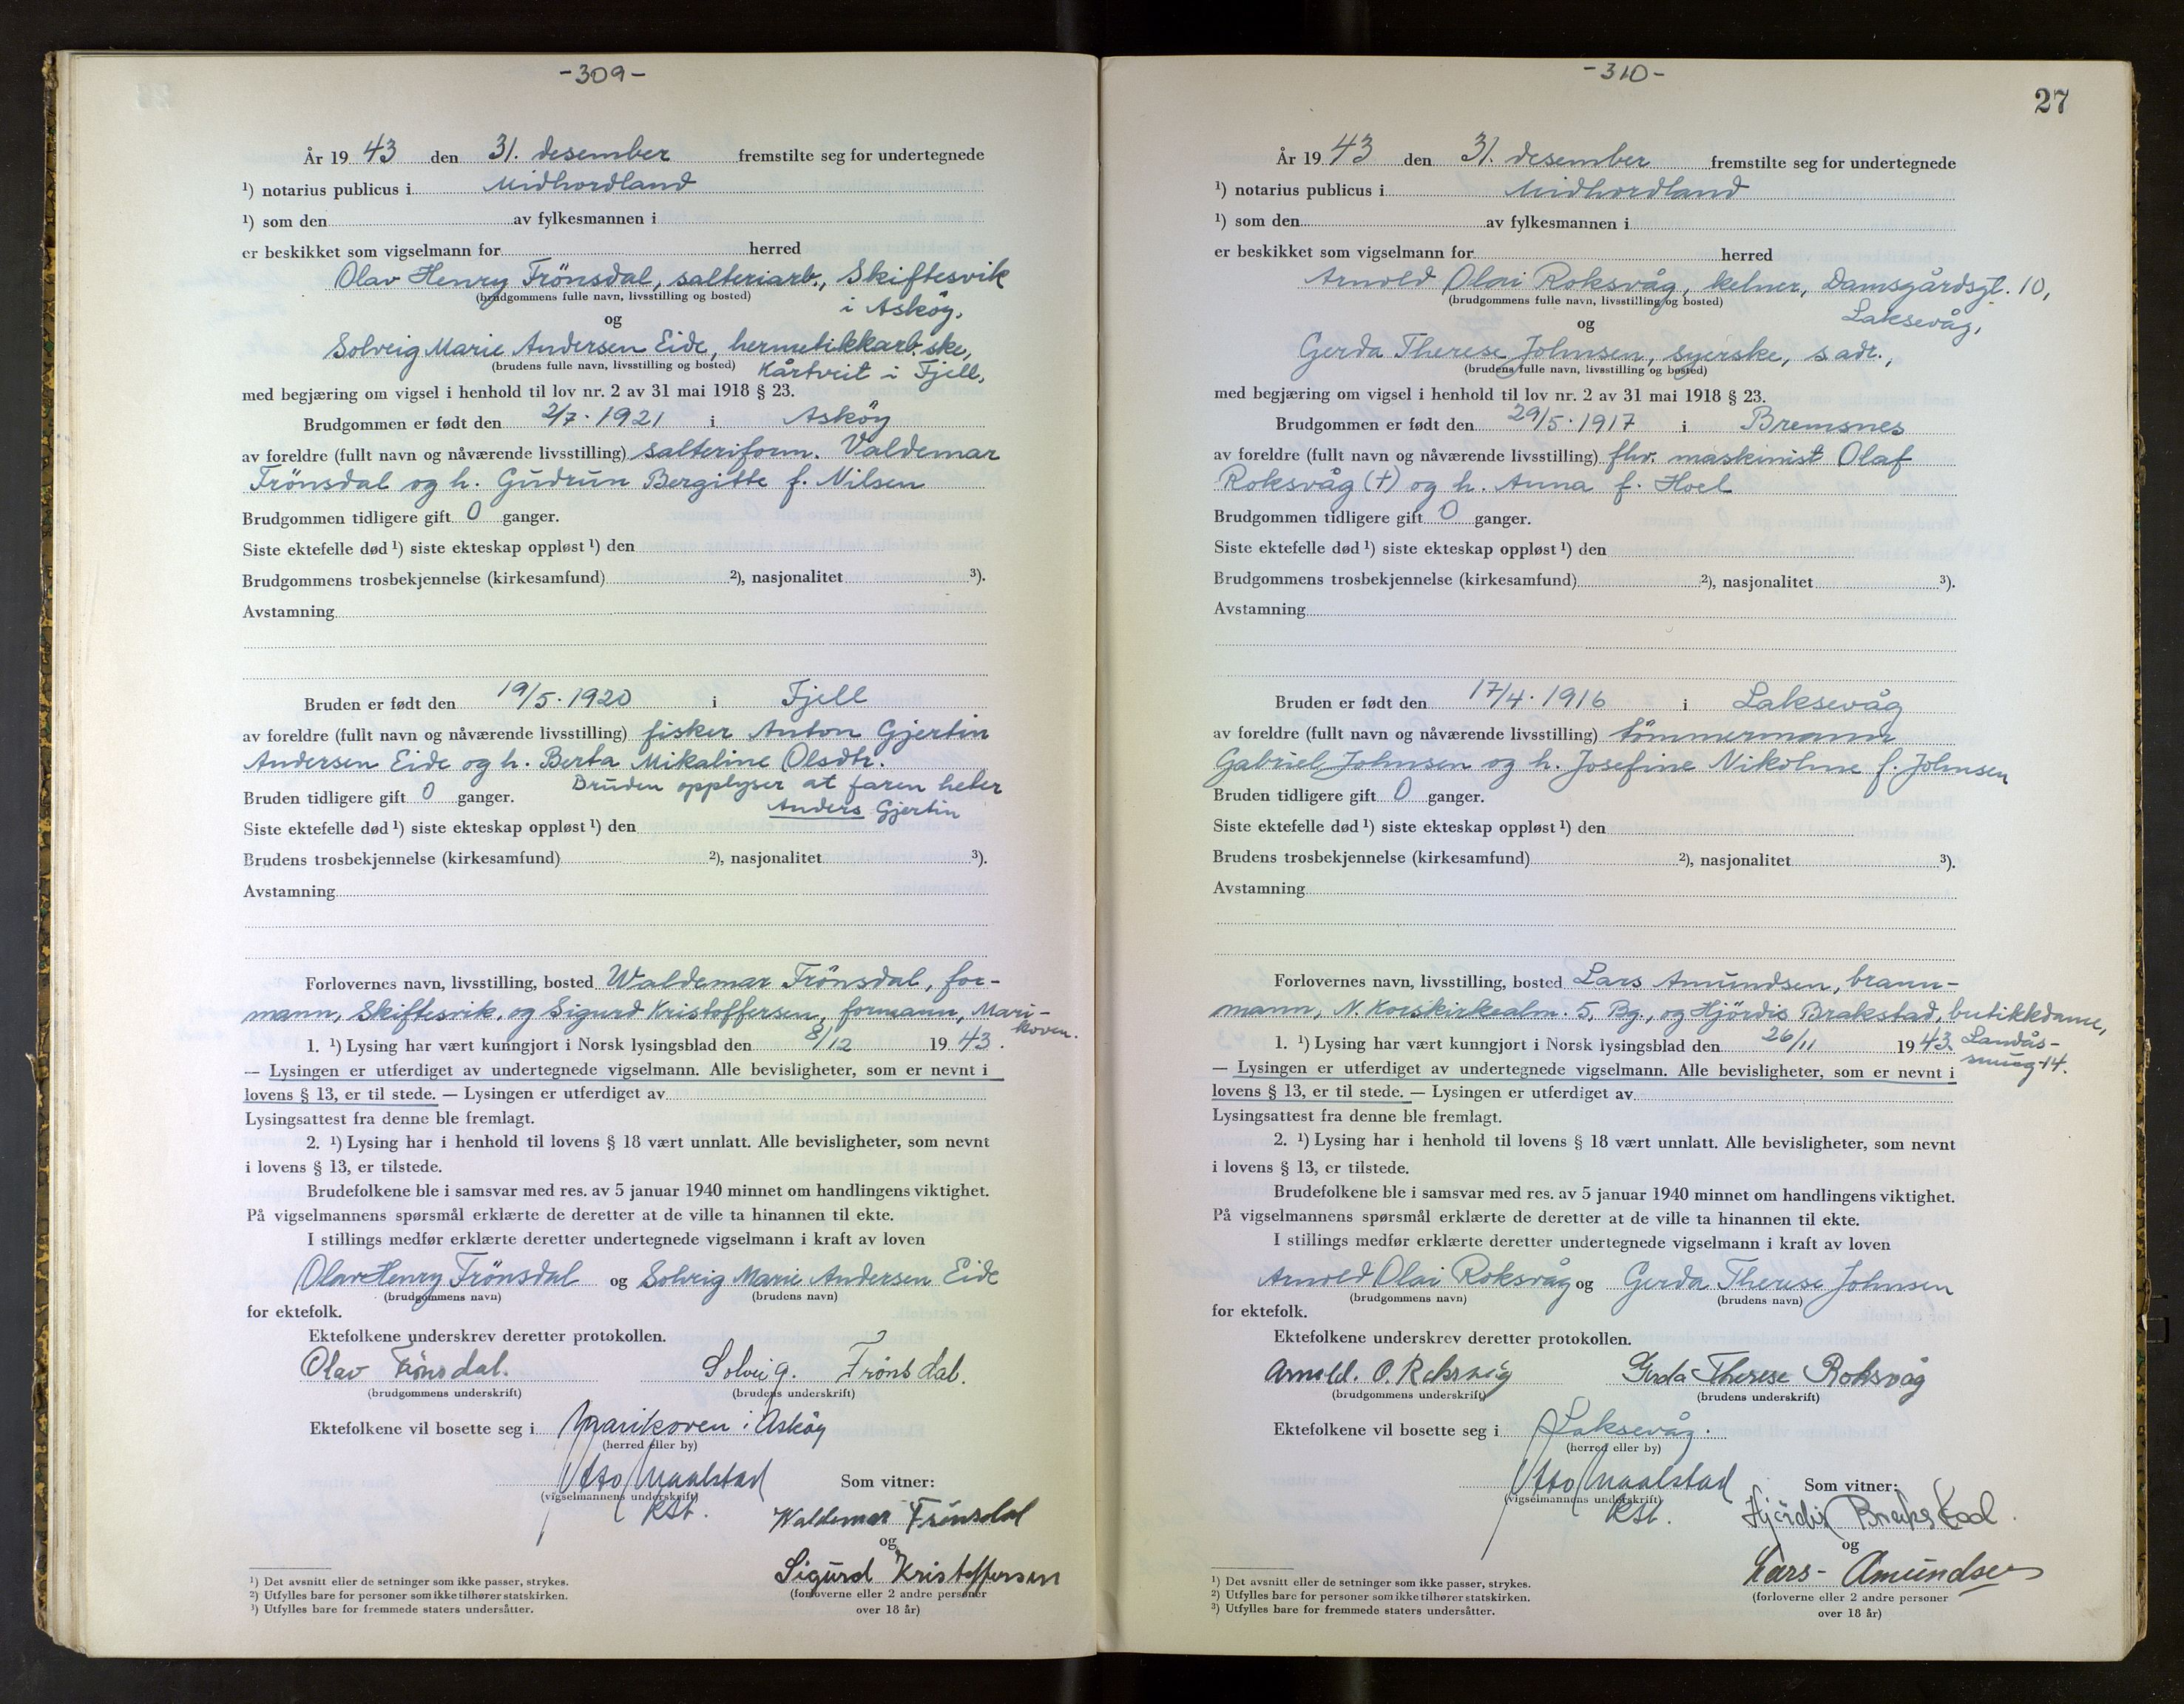 -309-
År 19 43 den 31. desember fremstilte seg for undertegnede
¹) notarius publicus i Midhordland
¹) som den av fylkesmannen i
er beskikket som vigselmann for herred
Olav Henry Frönsdal, salteriarb., Skiftesvik
(brudgommens fulle navn, livsstilling og bosted)
i Asköy,
og
Solveig Marie Andersen Eide, hermetikkarb.ske,
(brudens fulle navn, livsstilling og bosted) Kårtveit i Fjell,
med begjæring om vigsel i henhold til lov nr. 2 av 31 mai 1918 § 23.
Brudgommen er født den 2/7. 1921 i Asköy
av foreldre (fullt navn og nåværende livsstilling) salteriform. Valdemar
Frönsdal og h. Gudrun Bergitte f. Nilsen
Brudgommen tidligere gift 0 ganger.
Siste ektefelle død ¹) siste ekteskap oppløst ¹) den
Brudgommens trosbekjennelse (kirkesamfund) ²), nasjonalitet ³).
Avstamning
Bruden er født den 19/5. 1920 i Fjell
av foreldre (fullt navn og nåværende livsstilling) fisker Anton Gjertin
Andersen Eide og h. Berta Mikaline Olsdtr.
Bruden tidligere gift 0 ganger. Bruden opplyser at faren heter
Anders Gjertin
Siste ektefelle død ¹) siste ekteskap oppløst ¹) den
Brudens trosbekjennelse (kirkesamfund) ²), nasjonalitet ³).
Avstamning
Forlovernes navn, livsstilling, bosted Waldemar Frönsdal, for-
mann, Skiftesvik, og Sigurd Kristoffersen, formann, Mari-
koven.
1. ¹) Lysing har vært kunngjort i Norsk lysingsblad den 8/12 19 43.
— Lysingen er utferdiget av undertegnede vigselmann. Alle bevisligheter, som er nevnt i
lovens § 13, er til stede. — Lysingen er utferdiget av
Lysingsattest fra denne ble fremlagt.
2. ¹) Lysing har i henhold til lovens § 18 vært unnlatt. Alle bevisligheter, som nevnt
i lovens § 13, er tilstede.
Brudefolkene ble i samsvar med res. av 5 januar 1940 minnet om handlingens viktighet.
På vigselmannens spørsmål erklærte de deretter at de ville ta hinannen til ekte.
I stillings medfør erklærte deretter undertegnede vigselmann i kraft av loven
Olav Henry Frönsdal og Solveig Marie Andersen Eide
(brudgommens navn) (brudens navn)
for ektefolk.
Ektefolkene underskrev deretter protokollen.
Olav Frönsdal. Solveig. Frönsdal.
(brudgommens underskrift) (brudens underskrift)
Ektefolkene vil bosette seg i Marikoven i Asköy
(herred eller by)
Otto Maalstad Som vitner:
(vigselmannens underskrift)
Kst.
Waldemar Frönsdal
og
Sigurd Kristoffersen
(forloverne eller 2 andre personer
over 18 år)
¹) Det avsnitt eller de setninger som ikke passer, strykes.
²) Utfylles bare for personer som ikke tilhører statskirken.
³) Utfylles bare for fremmede staters undersåtter.
-310-
27
År 19 43 den 31. desember fremstilte seg for undertegnede
¹) notarius publicus i Midhordland
¹) som den av fylkesmannen i
er beskikket som vigselmann for herred
Arnold Olai Roksvåg, kelner, Damsgårdsgt. 10,
(brudgommens fulle navn, livsstilling og bosted)
Laksevåg,
og
Gerda Therese Johnsen, syerske, s. adr.,
(brudens fulle navn, livsstilling og bosted)
med begjæring om vigsel i henhold til lov nr. 2 av 31 mai 1918 § 23.
Brudgommen er født den 29/5. 1917 i Bremsnes
av foreldre (fullt navn og nåværende livsstilling) fhv. maskinist Olaf
Roksvåg (+) og h. Anna f. Hoel
Brudgommen tidligere gift 0 ganger.
Siste ektefelle død ¹) siste ekteskap oppløst ¹) den
Brudgommens trosbekjennelse (kirkesamfund) ²), nasjonalitet ³).
Avstamning
Bruden er født den 17/4. 1916 i Laksevåg
av foreldre (fullt navn og nåværende livsstilling) tömmermann
Gabriel Johnsen og h. Josefine Nikoline f. Johnsen
Bruden tidligere gift 0 ganger.
Siste ektefelle død ¹) siste ekteskap oppløst ¹) den
Brudens trosbekjennelse (kirkesamfund) ²), nasjonalitet ³).
Avstamning
Forlovernes navn, livsstilling, bosted Lars Amundsen, brann-
mann, N. Korskirkealm. 5, Bg., og Hjördis Brakstad, butikkdame,
Landås-
smug 14.
1. ¹) Lysing har vært kunngjort i Norsk lysingsblad den 26/11 19 43.
— Lysingen er utferdiget av undertegnede vigselmann. Alle bevisligheter, som er nevnt i
lovens § 13, er til stede. — Lysingen er utferdiget av
Lysingsattest fra denne ble fremlagt.
2. ¹) Lysing har i henhold til lovens § 18 vært unnlatt. Alle bevisligheter, som nevnt
i lovens § 13, er tilstede.
Brudefolkene ble i samsvar med res. av 5 januar 1940 minnet om handlingens viktighet.
På vigselmannens spørsmål erklærte de deretter at de ville ta hinannen til ekte.
I stillings medfør erklærte deretter undertegnede vigselmann i kraft av loven
Arnold Olai Roksvåg og Gerda Therese Johnsen
(brudgommens navn) (brudens navn)
for ektefolk.
Ektefolkene underskrev deretter protokollen.
Arnold. O. Roksvåg Gerda Therese Roksvåg
(brudgommens underskrift) (brudens underskrift)
Ektefolkene vil bosette seg i Laksevåg.
(herred eller by)
Otto Maalstad Som vitner:
(vigselmannens underskrift)
Kst.
Hjördis Brakstad.
og
Lars Amundsen
(forloverne eller 2 andre personer
over 18 år)
¹) Det avsnitt eller de setninger som ikke passer, strykes.
²) Utfylles bare for personer som ikke tilhører statskirken.
³) Utfylles bare for fremmede staters undersåtter.